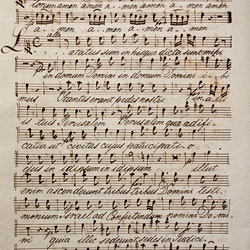 amen amen a- men amen amen
a- men a- men a- men amen
Lætatus sum in his quæ dicta sunt mihi
in domum Domini in domum Domini ibi-
mus Stantes erant pedes nostri in atri-
is tuis Jerusalem Jerusalem quæ ædifi-
catur ut civitas cujus participati- o
ejus in idipsum in idipsum illuc
enim ascenderunt tribus tribus Domini testi-
monium Israel ad Confitendum nomini Domi-
ni quia illic sederunt sedes in Judici-